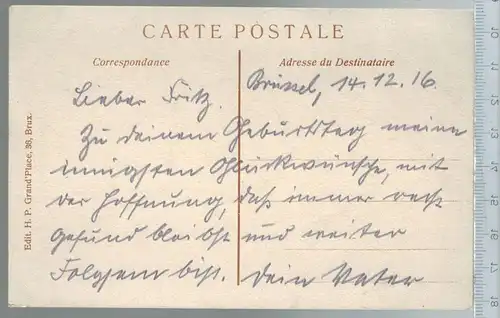 CARTE POSTALE
Correspondance
Adresse du Destinataire
Brüssel, 14.12.16.
Lieber Fritz.
Zu deinem Geburtstag meine
innigsten Glückwünsche, mit
der Hoffnung, daß immer recht
gesund bleibst und weiter
Folgsam bist. Dein Vater
Edit. H. P. Grand'Place, 36, Brux.
10 11 12 13 14 15 16 17 18